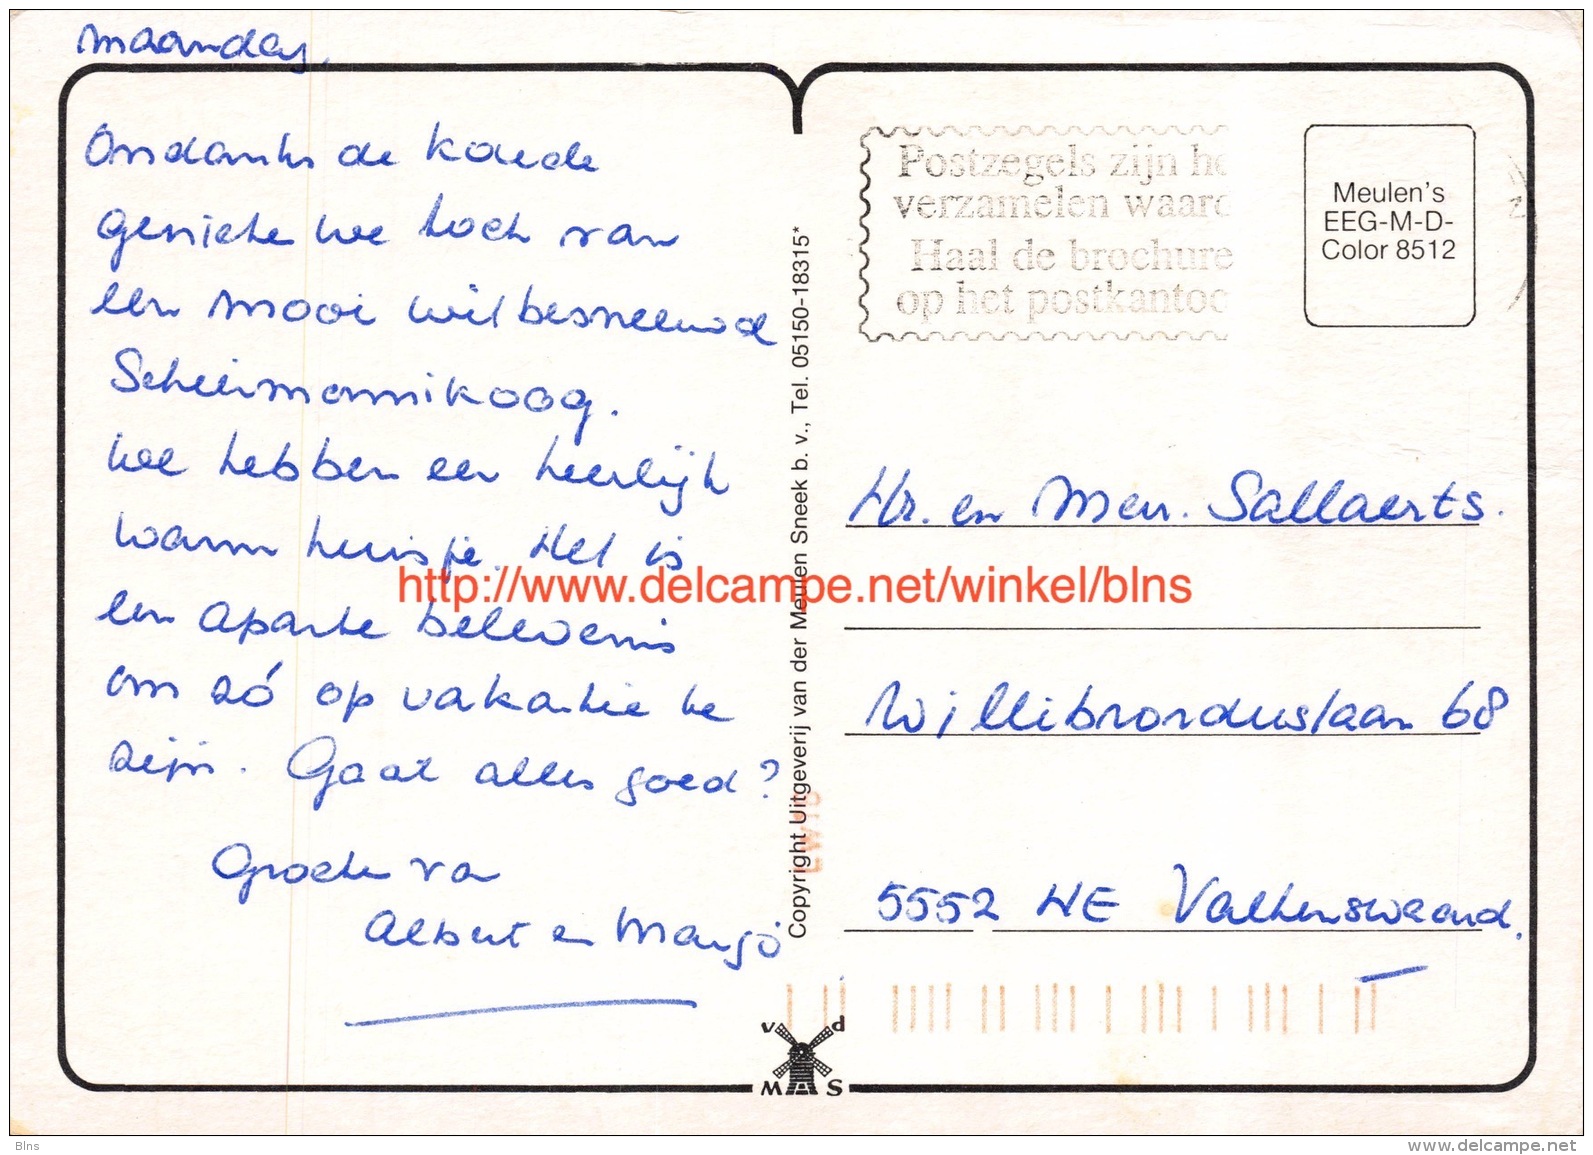 maandag,
Ondanks de koude
genieten we toch van
een mooi wit besneeuwd
Schiermonnikoog.
We hebben een heerlijk
warm huisje. Het is
een aparte belevenis
om zó op vakantie te
zijn. Gaat alles goed?
Groeten van
Albert en Margo
Copyright Uitgeverij van der Meulen Sneek b. v., Tel. 05150-18315*
Postzegels zijn he
verzamelen waard
Haal de brochure
op het postkantoo
Meulen's
EEG-M-D-
Color 8512
Hr. en Mevr. Sallaerts.
http://www.delcampe.net/winkel/blns
Willibrorduslaan 68
5552 HE Valkenswaard.
v d
M S
Blns
www.delcampe.net